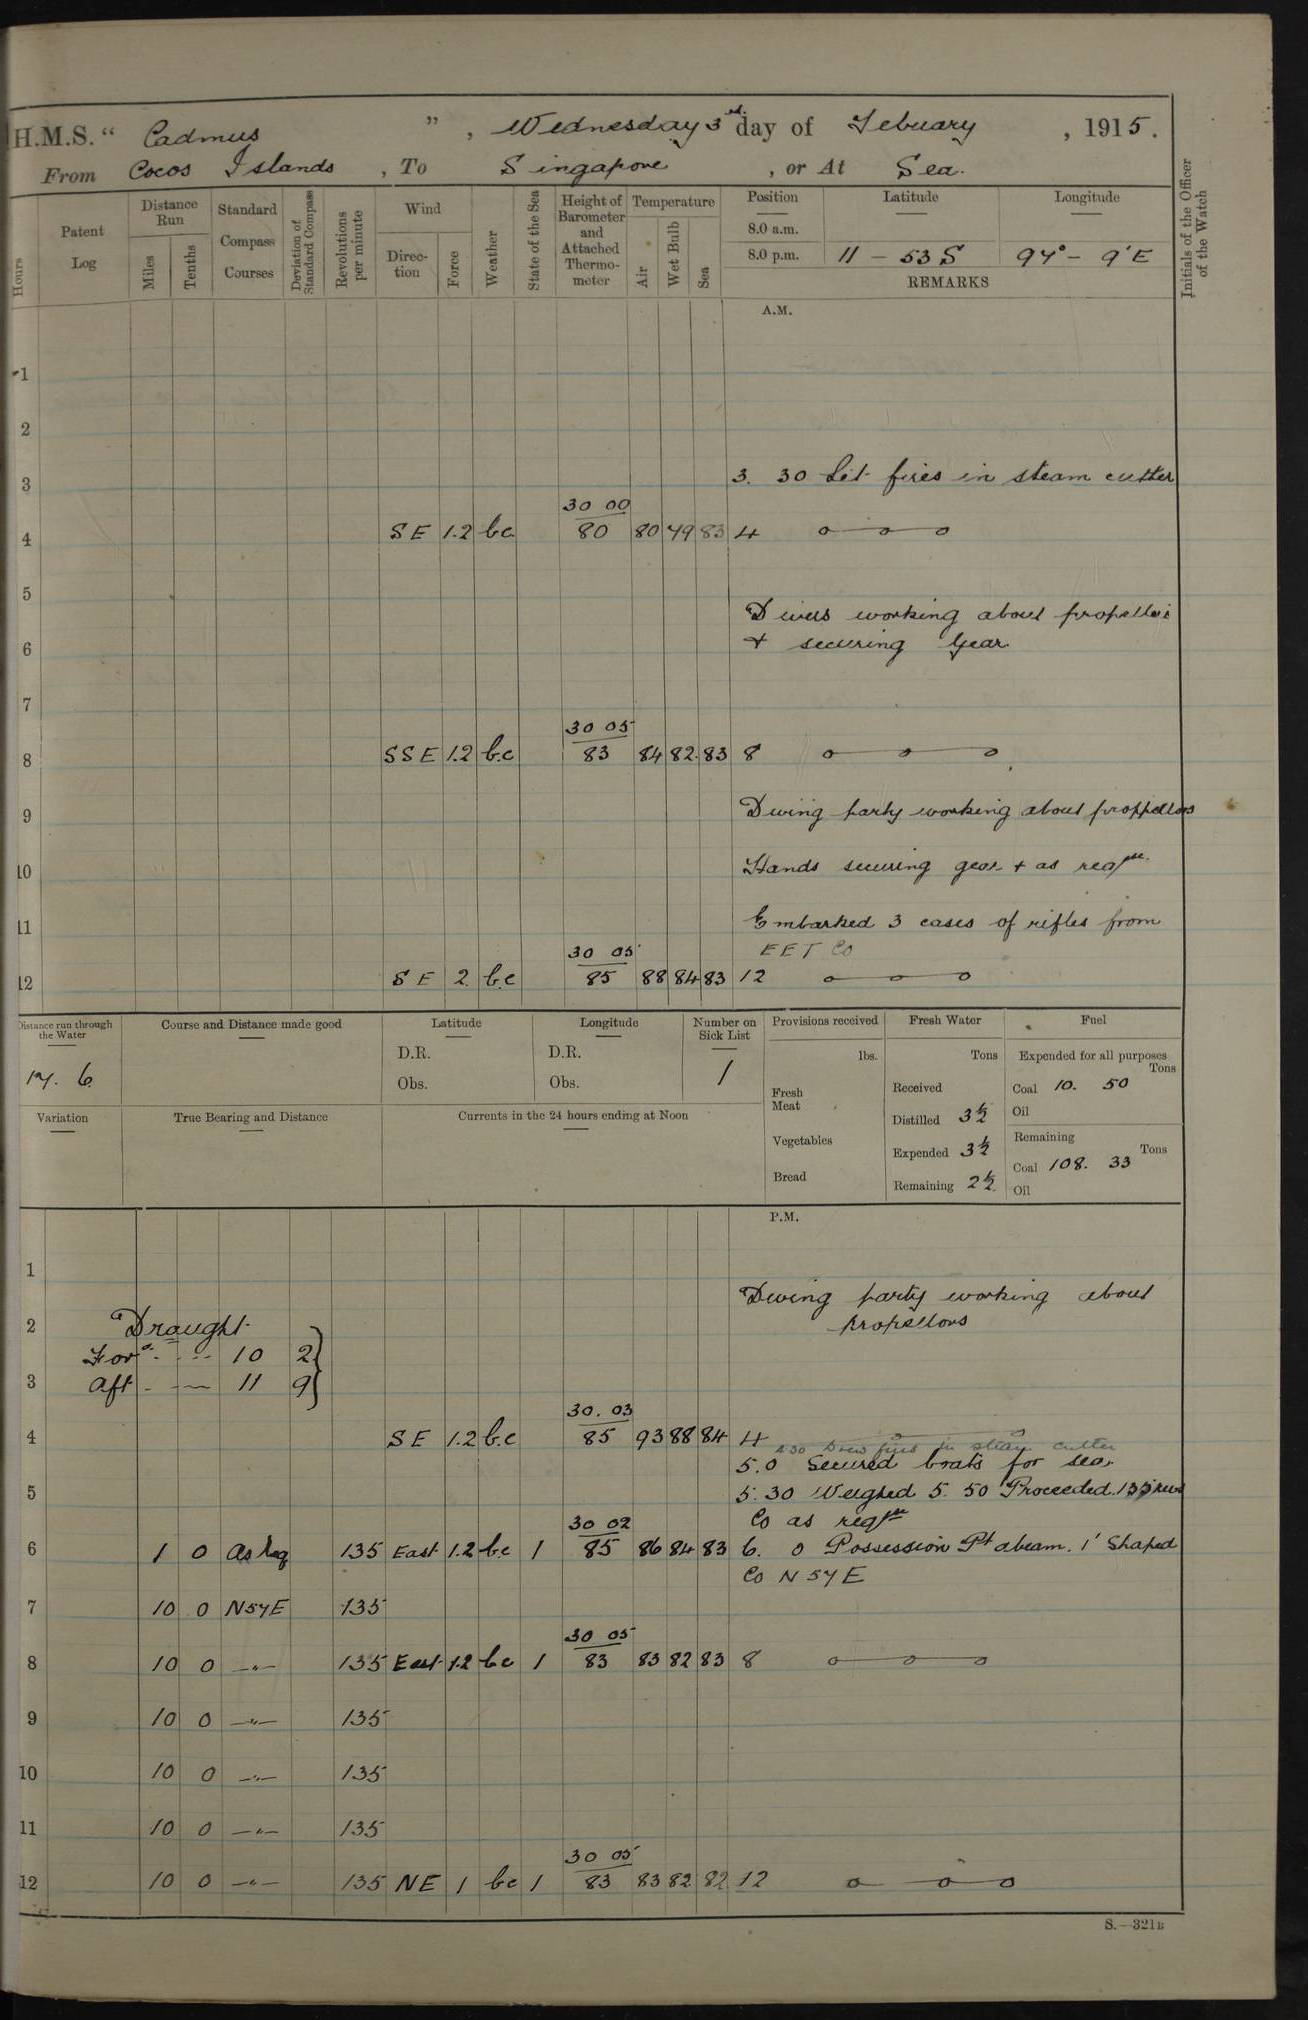 H.M.S. " Cadmus " , Wednesday 3rd day of Febuary , 1915.
From Cocos Islands , To Singapore , or At Sea.
Hours Patent Log Distance Run Miles Tenths Standard Compass Courses Deviation of Standard Compass Revolutions per minute Wind Direction Force Weather State of the Sea Height of Barometer and Attached Thermometer Temperature Air Wet Bulb Sea Position Latitude Longitude Initials of the Officer of the Watch
8.0 a.m.
8.0 p.m. 11 - 53 S 97° - 9' E
REMARKS
A.M.
1
2
3 3. 30 Lit fires in steam cutter
30 00
4 SE 1.2 bc 80 80 79 83 4
5
Divers working about propellers
6 + securing Gear
7
30 05
8 SSE 1.2 b.c 83 84 82 83 8
9 Diving party working about proppellors
10 Hands securing gear + as reqre
11 Embarked 3 cases of rifles from
30 05 EET Co
12 SE 2 b.c 85 88 84 83 12
Distance run through the Water Course and Distance made good Latitude Longitude Number on Sick List Provisions received Fresh Water Fuel
D.R. D.R. lbs. Tons Expended for all purposes Tons
17. 6 Obs. Obs. 1 Fresh Meat Received Coal 10. 50
Variation True Bearing and Distance Currents in the 24 hours ending at Noon Distilled 3½ Oil
Vegetables Expended 3½ Remaining Tons
Coal 108. 33
Bread Remaining 2½ Oil
P.M.
1
Diving party working about
2 Draught propellors
Ford 10 2
3 Aft 11 9
30. 03
4 SE 1.2 b.c 85 93 88 84 4
4.30 Drew fires in steam cutter
5.0 Secured boats for sea
5 5.30 Weighed 5. 50 Proceeded. 135 revs
30 02 Co as reqre
6 1 0 as req 135 East 1.2 b.c 1 85 86 84 83 6. 0 Possession Pt abeam. 1' Shaped
Co N 57 E
7 10 0 N57E 135
30 05
8 10 0 —"— 135 East 1.2 bc 1 83 83 82 83 8
9 10 0 —"— 135
10 10 0 —"— 135
11 10 0 —"— 135
30 05
12 10 0 —"— 135 NE 1 bc 1 83 83 82 82 12
S.—321B